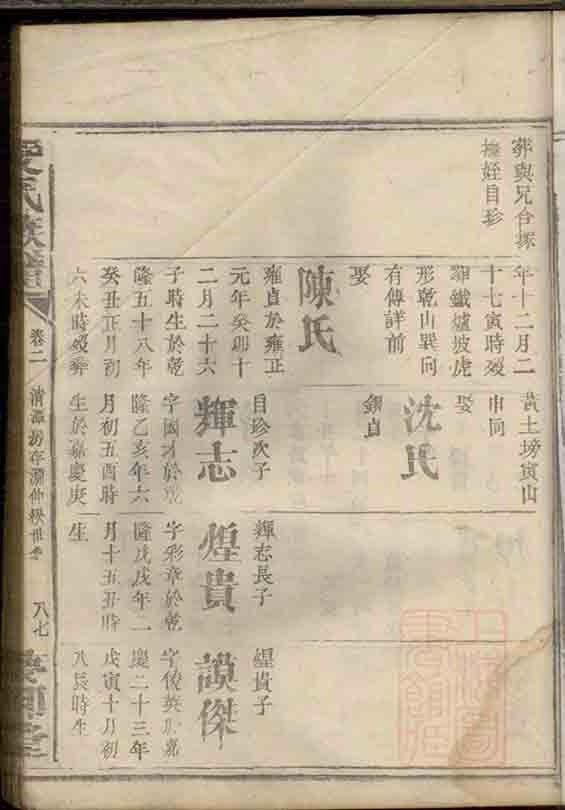 葬與兄合塚
撫姪自珍
年十二月二
十七寅時歿
葬鐵爐坡虎
形乾山巽向
有傳詳前
娶
陳氏
雍貞於雍正
元年癸卯十
二月二十六
子時生於乾
隆五十八年
癸丑正月初
六未時歿葬
黃土塝寅山
申向
娶
沈氏
自珍次子
輝志
字國才於乾
隆乙亥年六
月初五酉時
生於嘉慶庚
輝志長子
煌貴
字彩章於乾
隆戊戌年二
月十五丑時
生
煌貴子
謨傑
字俊英於嘉
慶二十三年
戊寅十月初
八辰時生
氏族譜
卷二
八七